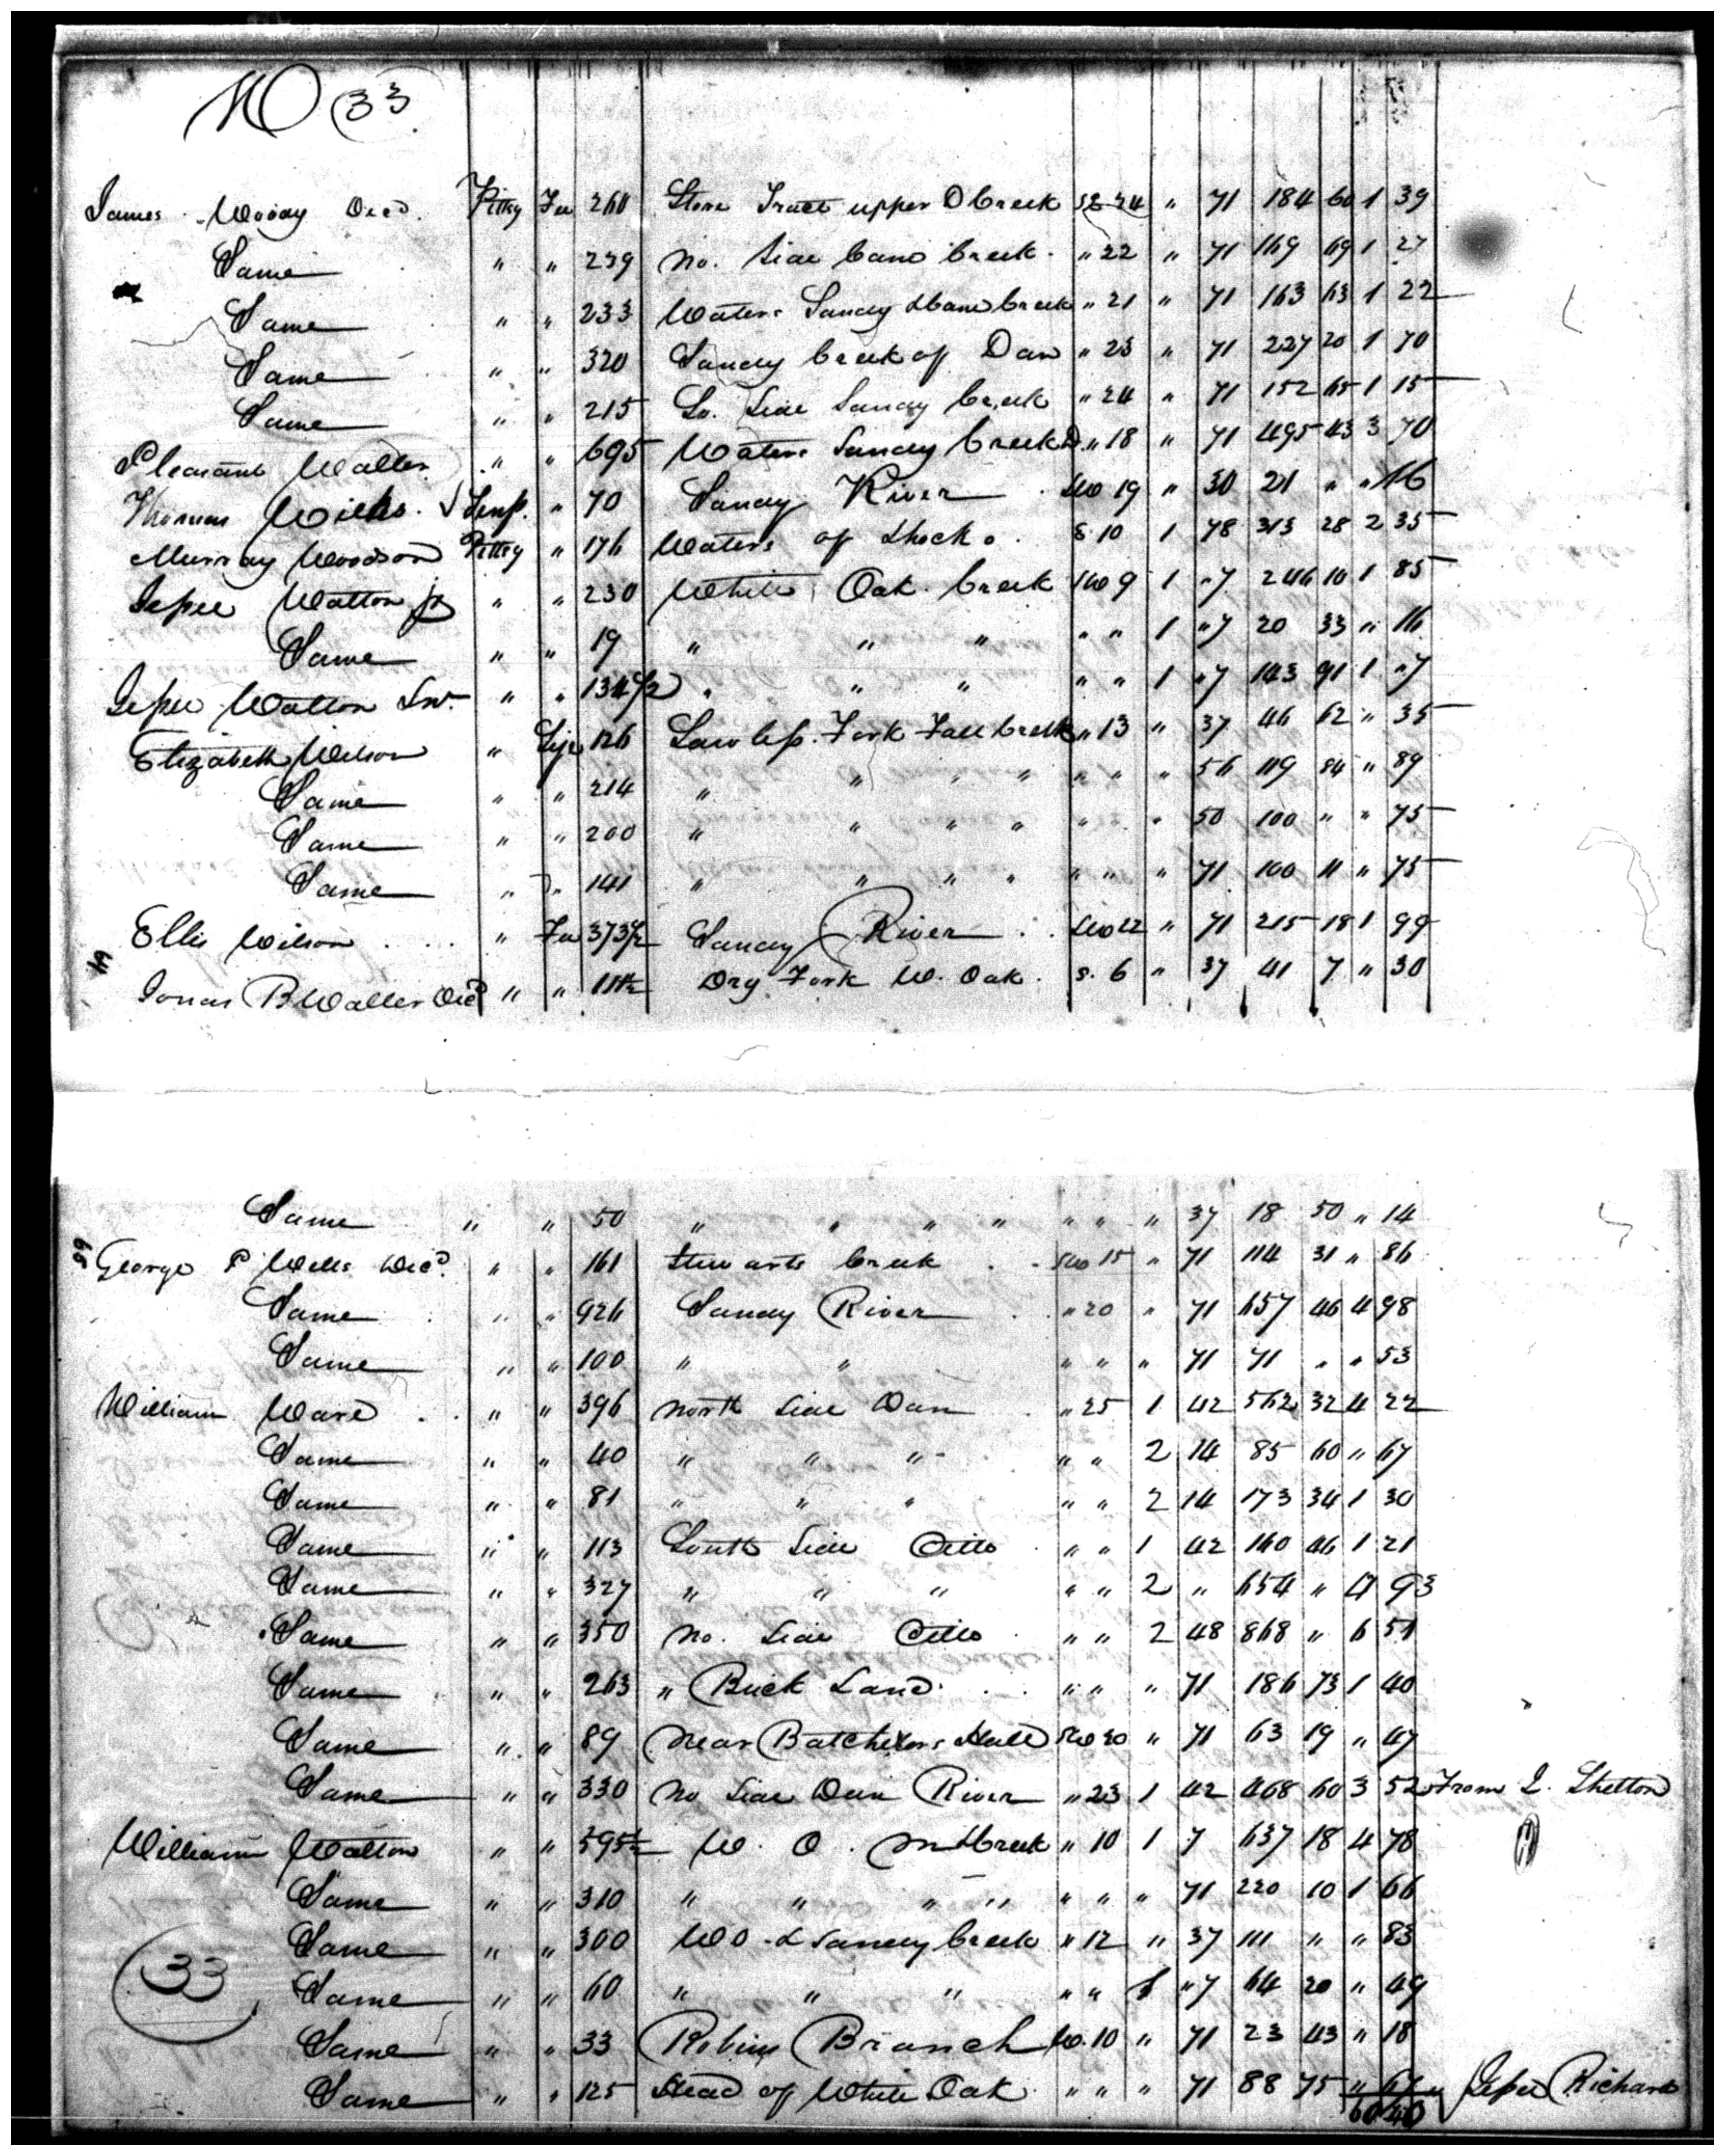 W (33
James Woody Decd. Pitty Fee 260 Store Tract upper D Creek SE 24 " 71 184 60 1 39
Same " " 239 No. Side Cane Creek " 22 " 71 169 69 1 27
Same " " 233 Waters Sandy & Cane Creek " 21 " 71 163 63 1 22
Same " " 320 Sandy Creek of Dan " 23 " 71 227 20 1 70
Same " " 215 So. Side Sandy Creek " 24 " 71 152 65 1 15
Pleasant Waller " " 695 Waters Sandy Creek D. " 18 " 71 495 43 3 70
Thomas Wilks Tenn. " 70 Sandy River SW 19 " 30 21 " " 16
Murray Woodson Pittsy " 176 Waters of Shocko S. 10 1 78 313 28 2 35
Jesse Walton Jr " " 230 White Oak Creek SW 9 1 "7 246 10 1 85
Same " " 19 " " " " " 1 "7 20 33 " 16
Jesse Walton Snr. " " 134 1/2 " " " " " 1 "7 143 91 1 "7
Elizabeth Wilson " Life 126 Lawless Fork Fall Creek " 13 " 37 46 62 " 35
Same " " 214 " " " " " " " 56 119 84 " 89
Same " " 200 " " " " " " " 50 100 " " 75
Same " " 141 " " " " " " " 71 100 11 " 75
Ellis Wilson " Fee 373 1/2 Sandy River SW 22 " 71 215 18 1 99
Jonas B Waller Decd " " 111 1/2 Dry Fork W. Oak S. 6 " 37 41 7 " 30
Same " " 50 " " " " " " " 37 18 50 " 14
George P Wells Decd. " " 161 Stewarts Creek SW 15 " 71 114 31 " 86
Same " " 926 Sandy River " 20 " 71 657 46 4 98
Same " " 100 " " " " " 71 71 " " 53
William Ware " " 396 North Side Dan " 25 1 42 562 32 4 22
Same " " 40 " " " " " 2 14 85 60 " 67
Same " " 81 " " " " " 2 14 173 34 1 30
Same " " 113 South Side Ditto " " 1 42 160 46 1 21
Same " " 327 " " " " " 2 " 654 " 4 93
Same " " 350 No. Side Ditto " " 2 48 868 " 6 51
Same " " 263 " Brick Land " " " 71 186 73 1 40
Same " " 89 Near Batchelors Hall SW 20 " 71 63 19 " 47
Same " " 330 No Side Dan River " 23 1 42 468 60 3 52 From I. Shelton
William Walton " " 595 1/2 W. O. Creek " 10 1 7 637 18 4 78
Same " " 310 " " " " " " " 71 220 10 1 66
Same " " 300 WO. & Sandy Creek " 12 " 37 111 " " 83
33 Same " " 60 " " " " " 1 "7 64 20 " 49
Same " " 33 Robins Branch W. 10 " 71 23 43 " 18
Same " " 125 Head of White Oak " " " 71 88 75 " 67 Jesse Richards
60 40